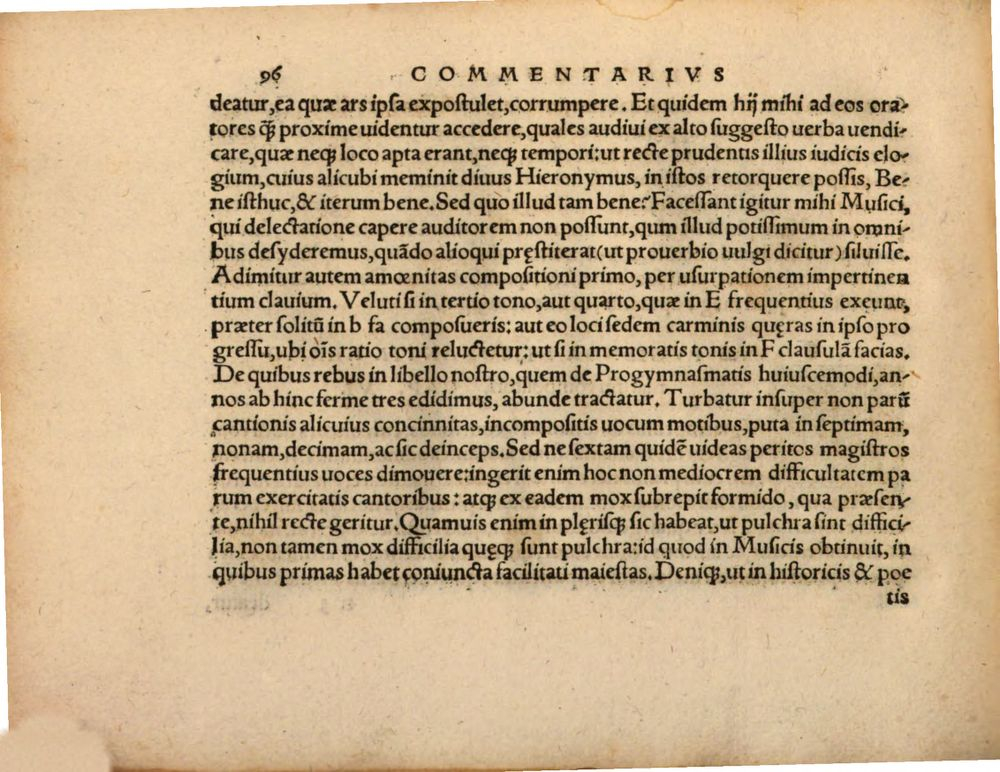 96 COMMENTARIVS
deatur,ea quæ ars ipſa expoſtulet,corrumpere. Et quidem hij mihi ad eos ora-
tores q̃ȝ proxime uidentur accedere,quales audiui ex alto ſuggeſto uerba uendi-
care,quæ neqȝ loco apta erant,neqȝ tempori:ut recte prudentis illius iudicis elo-
gium,cuius alicubi meminit diuus Hieronymus, in iſtos retorquere poſſis, Be-
ne iſthuc,& iterum bene. Sed quo illud tam bene? Faceſſant igitur mihi Muſici,
qui delectatione capere auditorem non poſſunt,qum illud potiſſimum in omni-
bus deſyderemus,quãdo alioqui pręſtiterat(ut prouerbio uulgi dicitur)ſiluiſſe.
Adimitur autem amœnitas compoſitioni primo, per uſurpationem impertinen
tium clauium. Veluti ſi in tertio tono,aut quarto,quæ in E frequentius exeunt,
præter ſolitũ in b fa compoſueris: aut eo loci ſedem carminis quęras in ipſo pro
greſſu,ubi oĩs ratio toni reluctetur: ut ſi in memoratis tonis in F clauſulã facias.
De quibus rebus in libello noſtro,quem de Progymnaſmatis huiuſcemodi,an-
nos ab hinc ferme tres edidimus, abunde tractatur. Turbatur inſuper non parũ
cantionis alicuius concinnitas,incompoſitis uocum motibus,puta in ſeptimam,
nonam,decimam,ac ſic deinceps. Sed ne ſextam quidẽ uideas peritos magiſtros
frequentius uoces dimouere:ingerit enim hoc non mediocrem difficultatem pa
rum exercitatis cantoribus: atqȝ ex eadem mox ſubrepit formido, qua præſen-
te,nihil recte geritur. Quamuis enim in plęriſqȝ ſic habeat,ut pulchra ſint diffici-
lia,non tamen mox difficilia quęqȝ ſunt pulchra:id quod in Muſicis obtinuit, in
quibus primas habet coniuncta facilitati maieſtas. Deniqȝ,ut in hiſtoricis & poe
tis